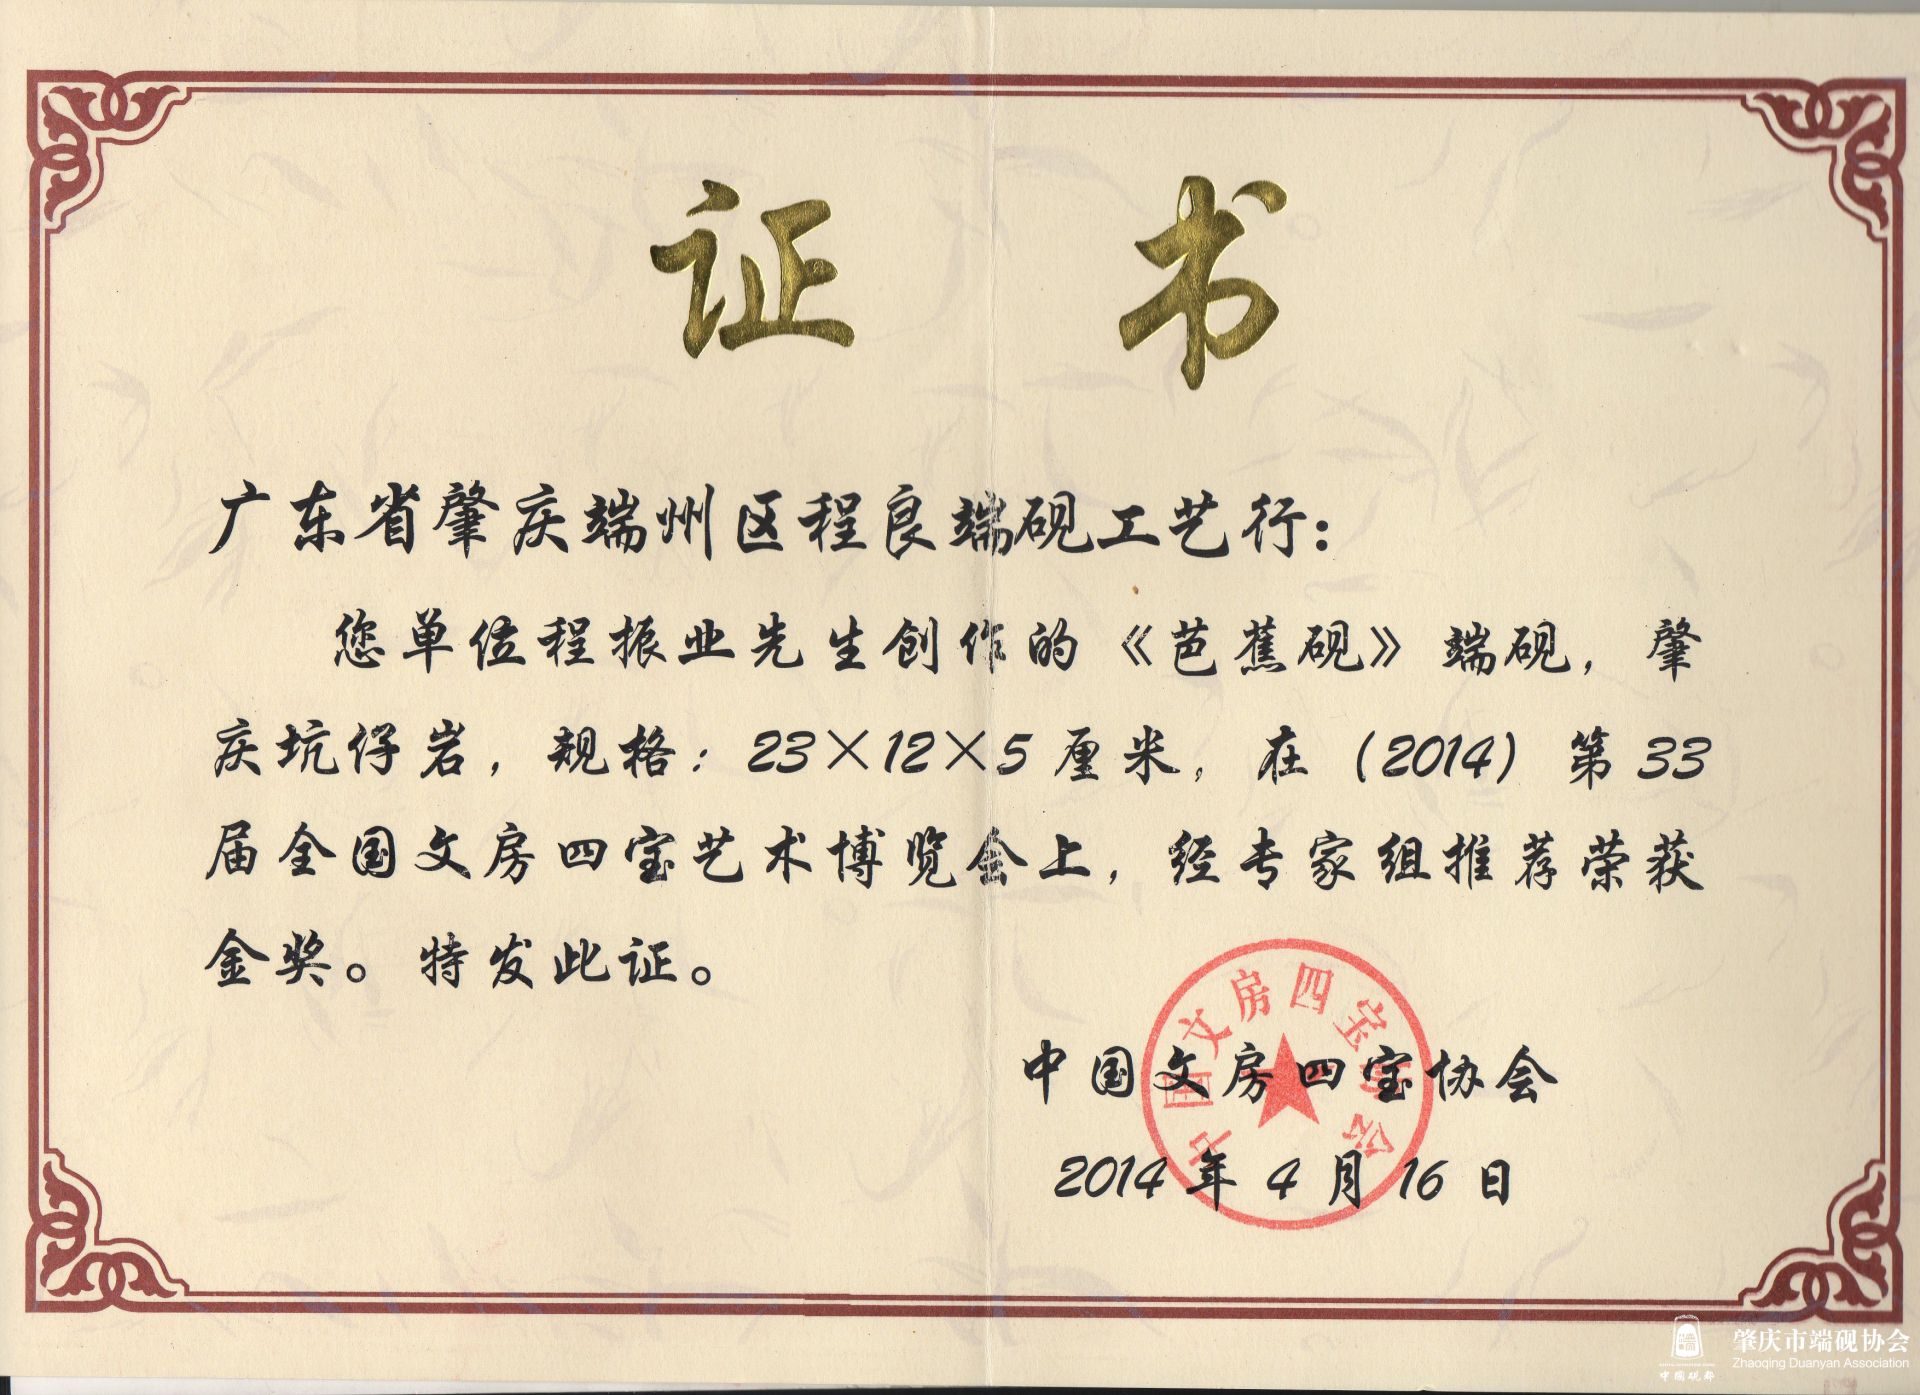 证书
广东省肇庆端州区程良端砚工艺行：
您单位程振业先生创作的《芭蕉砚》端砚，肇
庆坑仔岩，规格：23×12×5厘米，在（2014）第33
届全国文房四宝艺术博览会上，经专家组推荐荣获
金奖。特发此证。
中国文房四宝协会
中国文房四宝协会
2014年4月16日
中国砚都
肇庆市端砚协会
Zhaoqing Duanyan Association